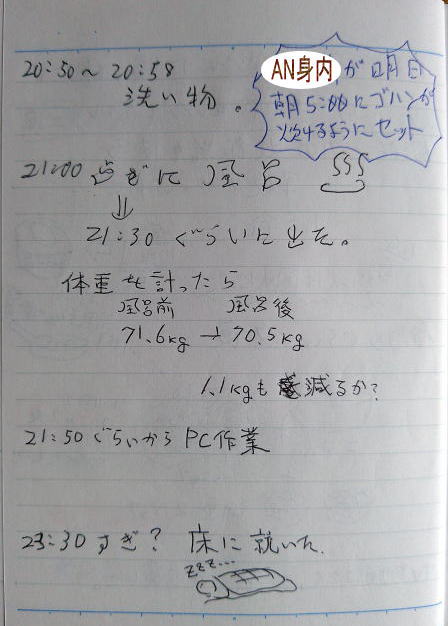 20:50〜20:58
洗い物。
AN身内が明日
朝5:00にゴハンが
炊けるようにセット
21:00過ぎに風呂
⇓
21:30ぐらいに出た。
体重を計ったら
風呂前 風呂後
71.6kg→70.5kg
1.1kgも減るか?
21:50ぐらいからPC作業
23:30すぎ?床に就いた。
zzz...